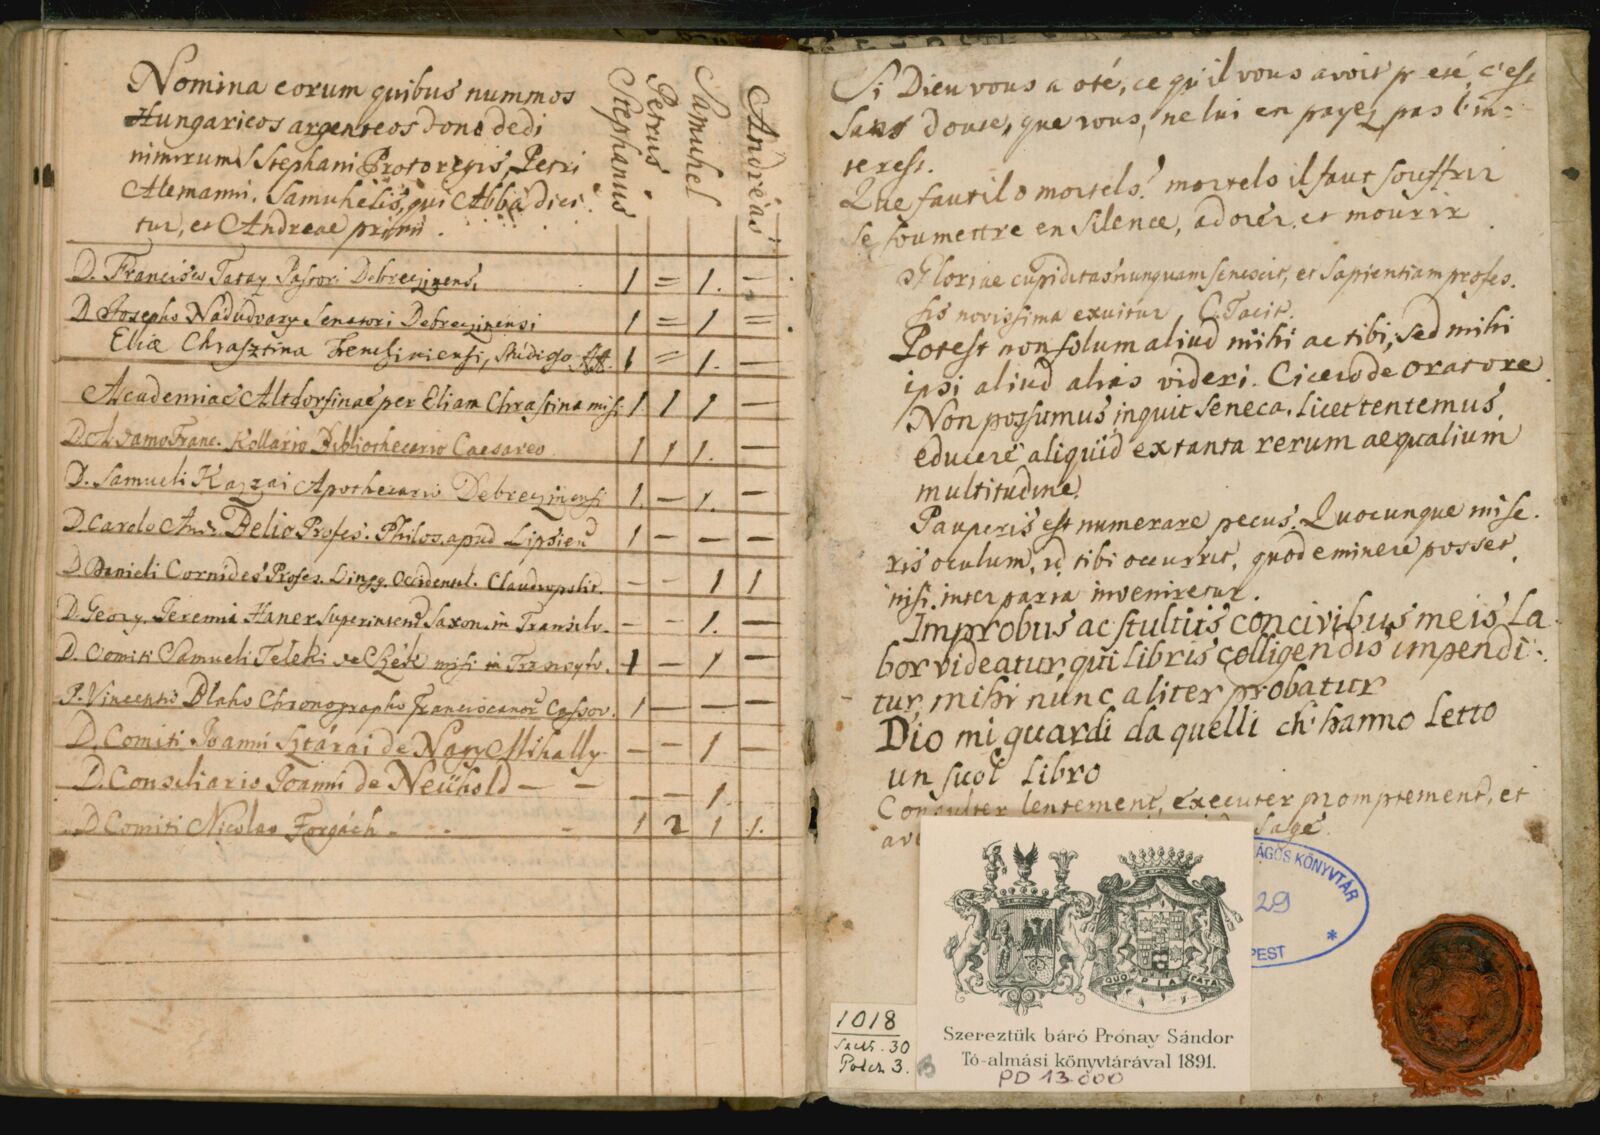 Nomina eorum quibus nummos
Hungaricos argenteos dono dedi
nimirum S Stephani Protoregis, Petri
Alemanni, Samuhelis, qui Abba dici
tur, et Andreae primi.
Stephanus
Petrus
Samuhel
Andreas
D. Francisco Tatay Pastori Debreczinens. 1 = 1. —
D Josepho Nadudvary Senatori Debreczinensi 1 = 1 =
Eliæ Chrasztina Trenchiniensi, 1 = 1. —
Academiae Altdorfinae per Eliam Chrastina miss. 1 1 1 —
D. Adamo Franc. Kollario Bibliothecario Caesareo 1 1 1. —
D. Samueli Kazzai Apothecario Debreczinensi 1. — 1. —
D. Carolo And. Belio Profes. Philos. apud Lipsien 1 — — —
D. Danieli Cornides Profes. Lingg. Occidental. Claudiopolit. — — 1 1
D. Georg. Jeremia Haner Superintend. Saxon. in Transilv. — — 1. —
D. Comiti Samueli Teleki de Szék misi in Transylv. 1 — 1 —
P. Vincentio Blaho Chronographo Franciscanor Cassov. 1 — — —
D. Comiti Joanni Sztárai de Nagy Mihally — — 1 —
D. Consiliario Joanni de Neühold — — — — 1.
D. Comiti Nicolao Forgách - - - 1 2 1 1.
Si Dieu vous a oté, ce qu'il vous avoit preté, c'est
sans doute, que vous, ne lui en payez pas l'in-
terest.
Que faut il o mortels! mortels il faut souffrir
se soumettre en silence, adorer, et mourir
Gloriae cupiditas nunquam senescit, et sapientiam profes.
sis novissima exuitur C. Tacit.
Potest non solum aliud mihi ac tibi, sed mihi
ipsi aliud alias videri. Cicero de Oratore
Non possumus inquit Seneca, licet tentemus,
educere aliquid ex tanta rerum aequalium
multitudine.
Pauperis est numerare pecus. Quocunque mise.
ris oculum, id tibi occurret, quod eminere posset,
nisi inter paria inveniretur.
Improbus ac stultus concivibus meis La
bor videatur, qui libris colligendis impendi-
tur, mihi nunc aliter probatur
Dio mi guardi da quelli ch' hanno letto
un suol libro
Consulter lentement, executer promptement, et
sage.
ÁGOS KÖNYVTÁR
29
PEST
*
QUO PIA FATA
Szereztük báró Prónay Sándor
Tó-almási könyvtárával 1891.
PD 13.000
1018
30
3.